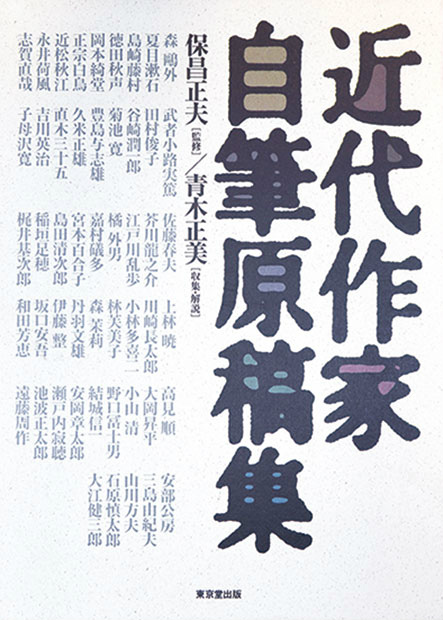 近代作家
自筆原稿集
保昌正夫[監修]/青木正美[収集・解説]
森 鷗外 武者小路実篤 佐藤春夫 上林 暁 高見 順 安部公房
夏目漱石 田村俊子 芥川龍之介 川崎長太郎 大岡昇平 三島由紀夫
島崎藤村 谷崎潤一郎 江戸川乱歩 小林多喜二 小山 清 山川方夫
徳田秋声 菊池 寛 橘 外男 林芙美子 野口冨士男 石原慎太郎
岡本綺堂 豊島与志雄 嘉村礒多 森 茉莉 結城信一 大江健三郎
正宗白鳥 久米正雄 宮本百合子 丹羽文雄 安岡章太郎
近松秋江 直木三十五 島田清次郎 伊藤 整 瀬戸内寂聴
永井荷風 吉川英治 稲垣足穂 坂口安吾 池波正太郎
志賀直哉 子母沢寛 梶井基次郎 和田芳恵 遠藤周作
東京堂出版